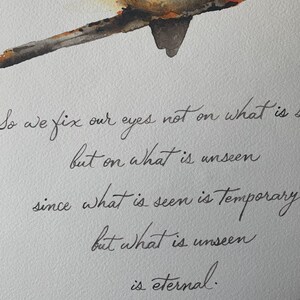 So we fix our eyes not on what is s
but on what is unseen
since what is seen is temporary
but what is unseen
is eternal.